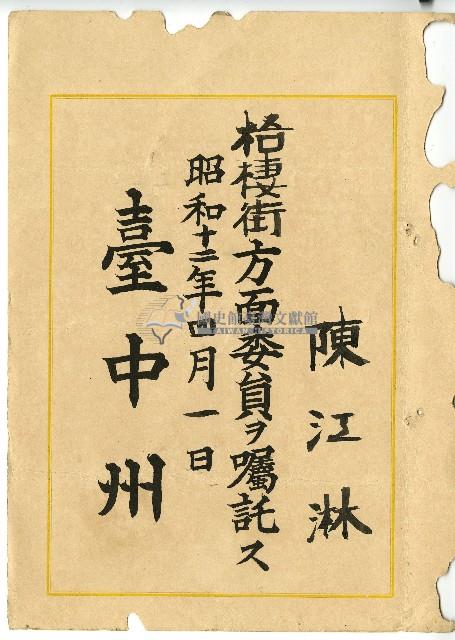 陳江淋
梧棲街方面委員ヲ囑託ス
昭和十二年四月一日
臺中州
國史館臺灣文獻館
TAIWAN HISTORICA